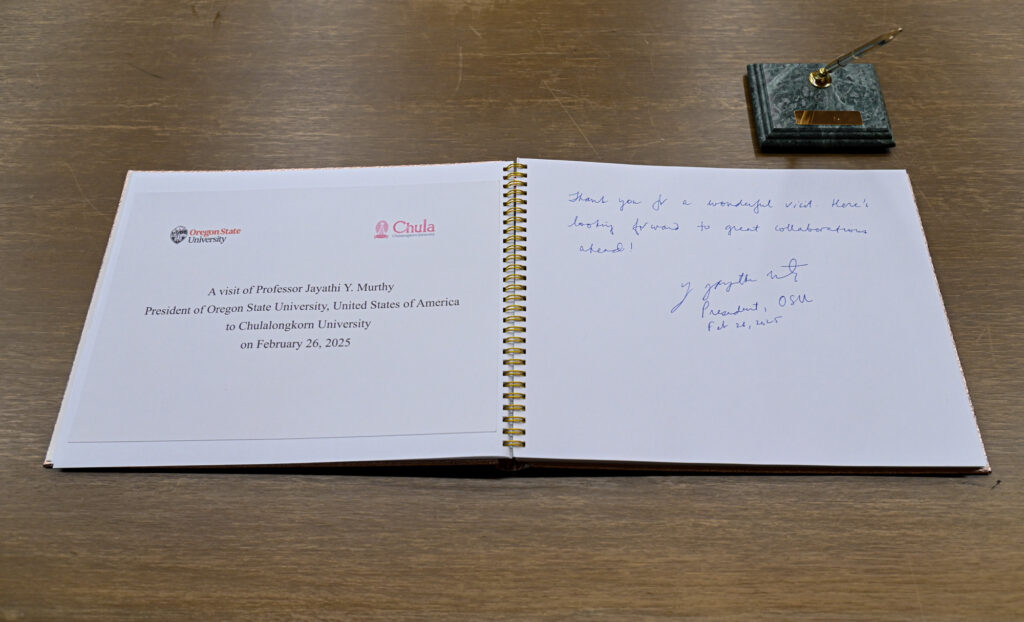 Oregon State
University
Chula
Chulalongkorn University
A visit of Professor Jayathi Y. Murthy
President of Oregon State University, United States of America
to Chulalongkorn University
on February 26, 2025
Thank you for a wonderful visit. Here's
looking forward to great collaborations
ahead!
President, OSU
Feb 26, 2025